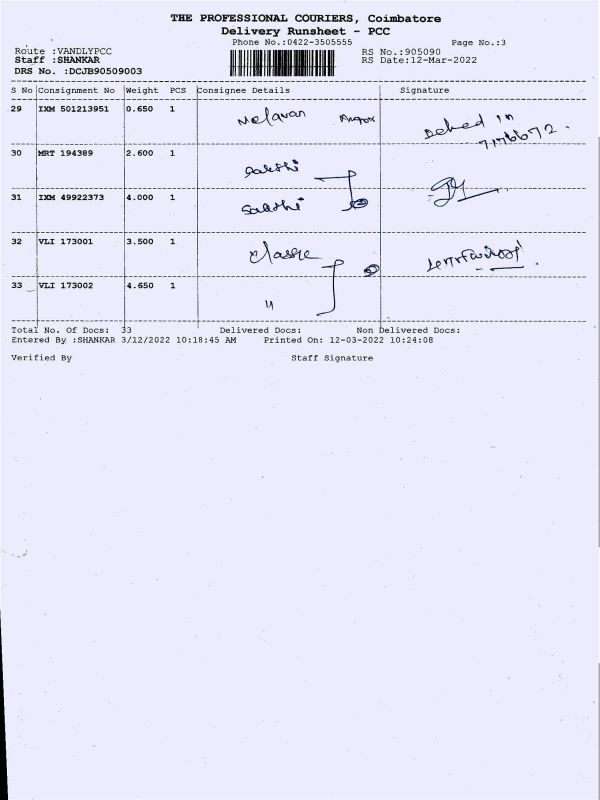 THE PROFESSIONAL COURIERS, Coimbatore
Delivery Runsheet - PCC
Phone No.:0422-3505555 Page No.:3
Route :VANDLYPCC RS No.:905090
Staff :SHANKAR RS Date:12-Mar-2022
DRS No. :DCJB90509003
S No Consignment No Weight PCS Consignee Details Signature
29 IXM 501213951 0.650 1
30 MRT 194389 2.600 1 Sakshi
31 IXM 49922373 4.000 1 Sakshi
32 VLI 173001 3.500 1 Classic
33 VLI 173002 4.650 1 "
Total No. Of Docs: 33 Delivered Docs: Non Delivered Docs:
Entered By :SHANKAR 3/12/2022 10:18:45 AM Printed On: 12-03-2022 10:24:08
Verified By Staff Signature